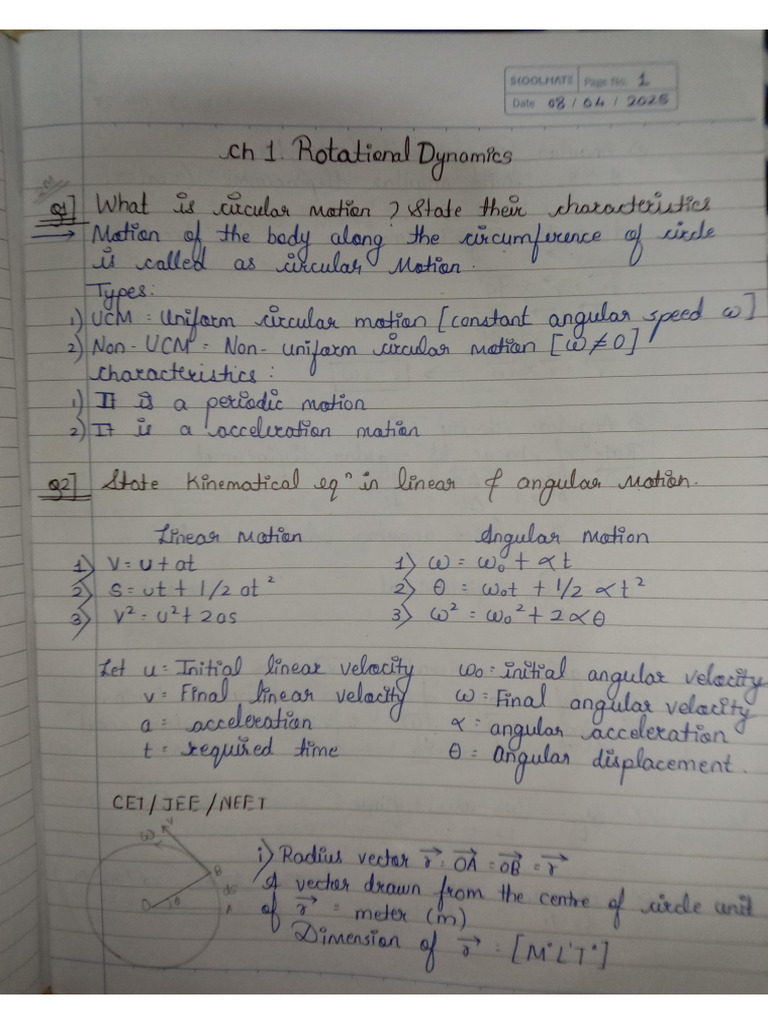 SKOOLMATE Page No. 1
Date 08 / 04 / 2025
Ch 1. Rotational Dynamics
Q1] What is circular motion ? State their characteristics
→ Motion of the body along the circumference of circle
is called as circular Motion.
Types:
1) UCM = Uniform circular motion [constant angular speed ω]
2) Non-UCM = Non-uniform circular motion [ω ≠ 0]
characteristics :
1) It is a periodic motion
2) It is a acceleration motion
Q2] State Kinematical eqⁿ in linear & angular Motion.
Linear Motion Angular Motion
1) v = u + at 1) ω = ω₀ + αt
2) s = ut + 1/2 at² 2) θ = ω₀t + 1/2 αt²
3) v² = u² + 2as 3) ω² = ω₀² + 2αθ
Let u = Initial linear velocity ω₀ = initial angular velocity
v = Final linear velocity ω = Final angular velocity
a = acceleration α = angular acceleration
t = required time θ = Angular displacement.
CET / JEE / NEET
v
ω
i) Radius vector r⃗ = OA⃗ = OB⃗ = r⃗
B
A vector drawn from the centre of circle unit
ds
O θ A
of r⃗ = meter (m)
Dimension of r⃗ = [M°L¹T°]